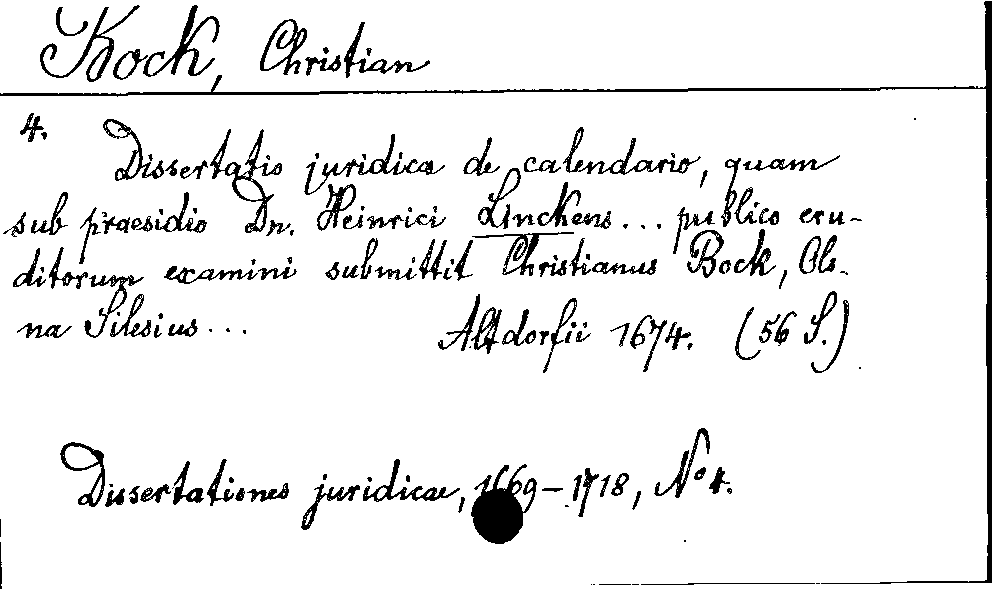 Bock, Christian
4.
Dissertatio juridica de calendario, quam
sub praesidio Dn. Heinrici Linckens... publico eru-
ditorum examini submittit Christianus Bock, Ols-
na Silesius...
Altdorfii 1674. (56 S.)
Dissertationes juridicae, 1669-1718, No 4.